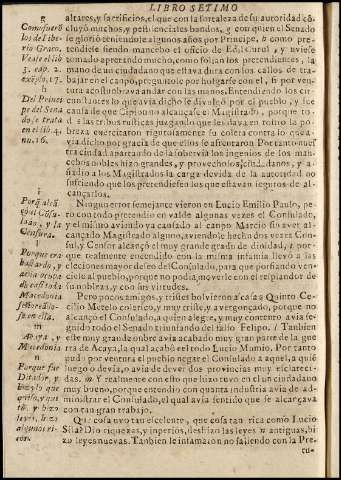 LIBRO SETIMO
g
Como fuerõ
los del libe-
rio Graco.
Vease el lib
3. cap. 2.
exẽplo. 17.
h
Del Princi
pe del Sena
do, se trata
en el lib. 4.
nu. 16.
i
Porq̃ alcã
ço el Cõsu-
lado, y la
Censura.
k
Porque era
bastardo, y
avia triun-
do
Macedonia
m
Acaya, y
Macedonia
n
Porque fue
Ditador, y
hizo lo que
quiso, y qui
tò, y hizo
leyes, hizo
algunos ri-
cos.
altares, y sacrificios, el que con la fortaleza de su autoridad cõ-
cluyò muchos, y pestilenciales bandos, g con quien el Senado
se gloriò teniendole algunos años por Principe, h como pre-
tendiesse siendo mancebo el oficio de Edil Curul, y uviesse
tomado apretando mucho, como suelen los pretendientes, la
mano de un ciudadano que estava dura con los callos de tra-
bajar en el campo, preguntole por holgarse con el, si por ven-
tura acostumbrava andar con las manos. Entendiendo los cir-
cunstantes lo que avia dicho se divulgò por el pueblo, y fue
causa de que Cipion no alcançasse el Magistrado, porque to-
das las tribus rusticas juzgando que les dava en rostro la po-
breza exercitaron rigurosamente su colera contra lo que a-
via dicho por gracia de que ellos se afrentaron. Por tanto nues
tra ciudad apartando de la sobervia los ingenios de los man-
cebos nobles hizo grandes, y provechosos ciudadanos, y a-
ñadio a los Magistrados la carga devida de la autoridad no
sufriendo que los pretendiessen los que estavan seguros de al-
cançarlos.
Ningun error semejante vieron en Lucio Emilio Paulo, pe-
ro con todo pretendio en valde algunas vezes el Consulado,
y el mismo aviendo ya cansado al campo Marcio sin aver al-
cançado Magistrado alguno, aviendole hecho dos vezes Côn-
sul, y Censor alcançò el muy grande grado de dinidad, i por-
que realmente encendido con la misma infamia llevò a las
elecciones mayor deseo del Consulado, para que porfiando ven-
ciesse al pueblo, porque no podia moverle con el resplandor de
su nobleza, y con sus virtudes.
Pero pocos amigos, y tristes bolvieron a casa a Quinto Ce-
cilio Metelo colerico, y muy triste, y avergonçado, porque no
alcançò el Consulado, a quien alegre, y muy contento avia se-
guido todo el Senado triunfando del falso Felipo. l Tambien
este muy grande onbre avia acabado muy gran parte de la guer
ra de Acaya, la qual acabò el todo Lucio Mumio. Por tanto
pudo por ventura el pueblo negar el Consulado a aquel, a quiẽ
luego o devia, o avia de dever dos provincias muy esclareci-
das. m Y realmente con esto que hizo tuvo en el un ciudadano
muy bueno, porque entendio con quanta industria avia de ad-
ministrar el Consulado, el qual avia sentido que se alcançava
con tan gran trabajo.
Que cosa uvo tan excelente, que cosa tan rica como Lucio
Sila? Dio riquezas, y imperios, deshizo las leyes n antiguas, hi
zo leyes nuevas. Tanbien le infamaron no saliendo con la Pre-
tu-